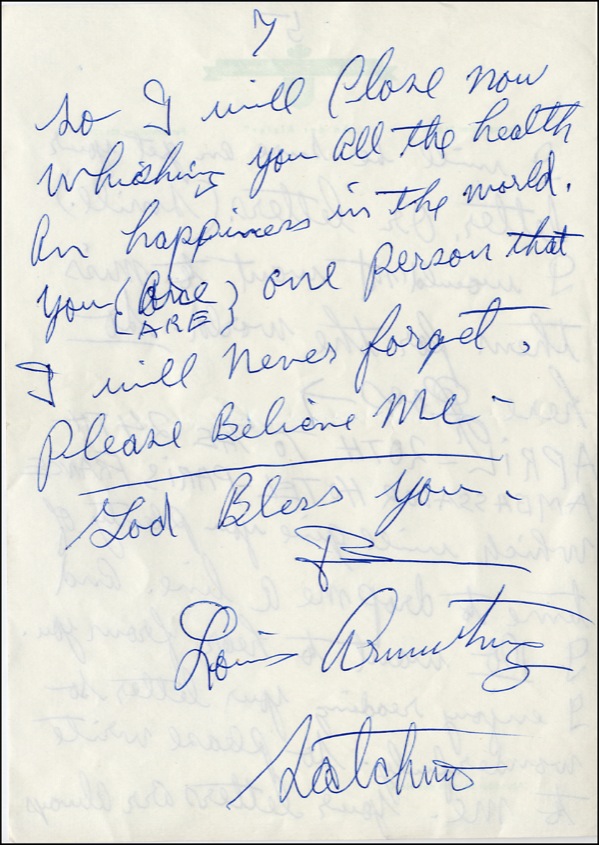 7
So I will Close now
Whishing you all the health
An happiness in the world.
you (Are) one person that
(ARE)
I will never forget.
Please Believe Me -
God Bless you -
Louis Armstrong
Satchmo